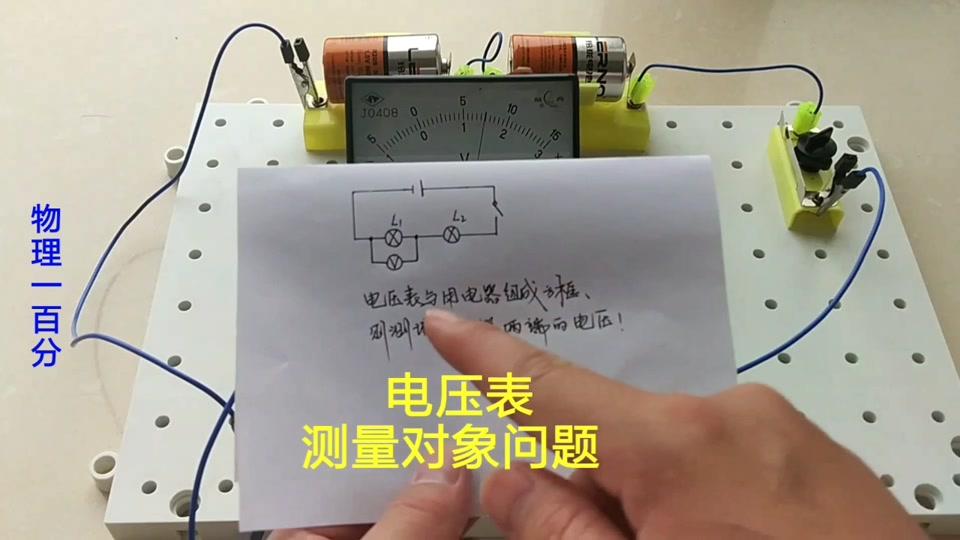 J0408
5 0 5 10 15
1 0 1 2 3
V
L₁ L₂
V
电压表与用电器组成方框、
则测 两端的电压！
物理一百分
电压表
测量对象问题